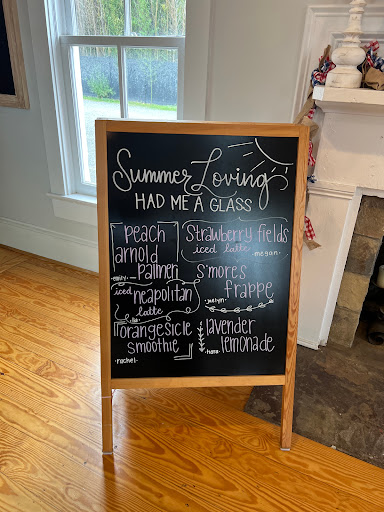 Summer Loving
HAD ME A GLASS
peach
arnold
palmer
-emily-
Strawberry fields
iced latte
-megan-
iced neapolitan
latte
S'mores
frappe
orangesicle
smoothie
-rachel-
lavender
lemonade